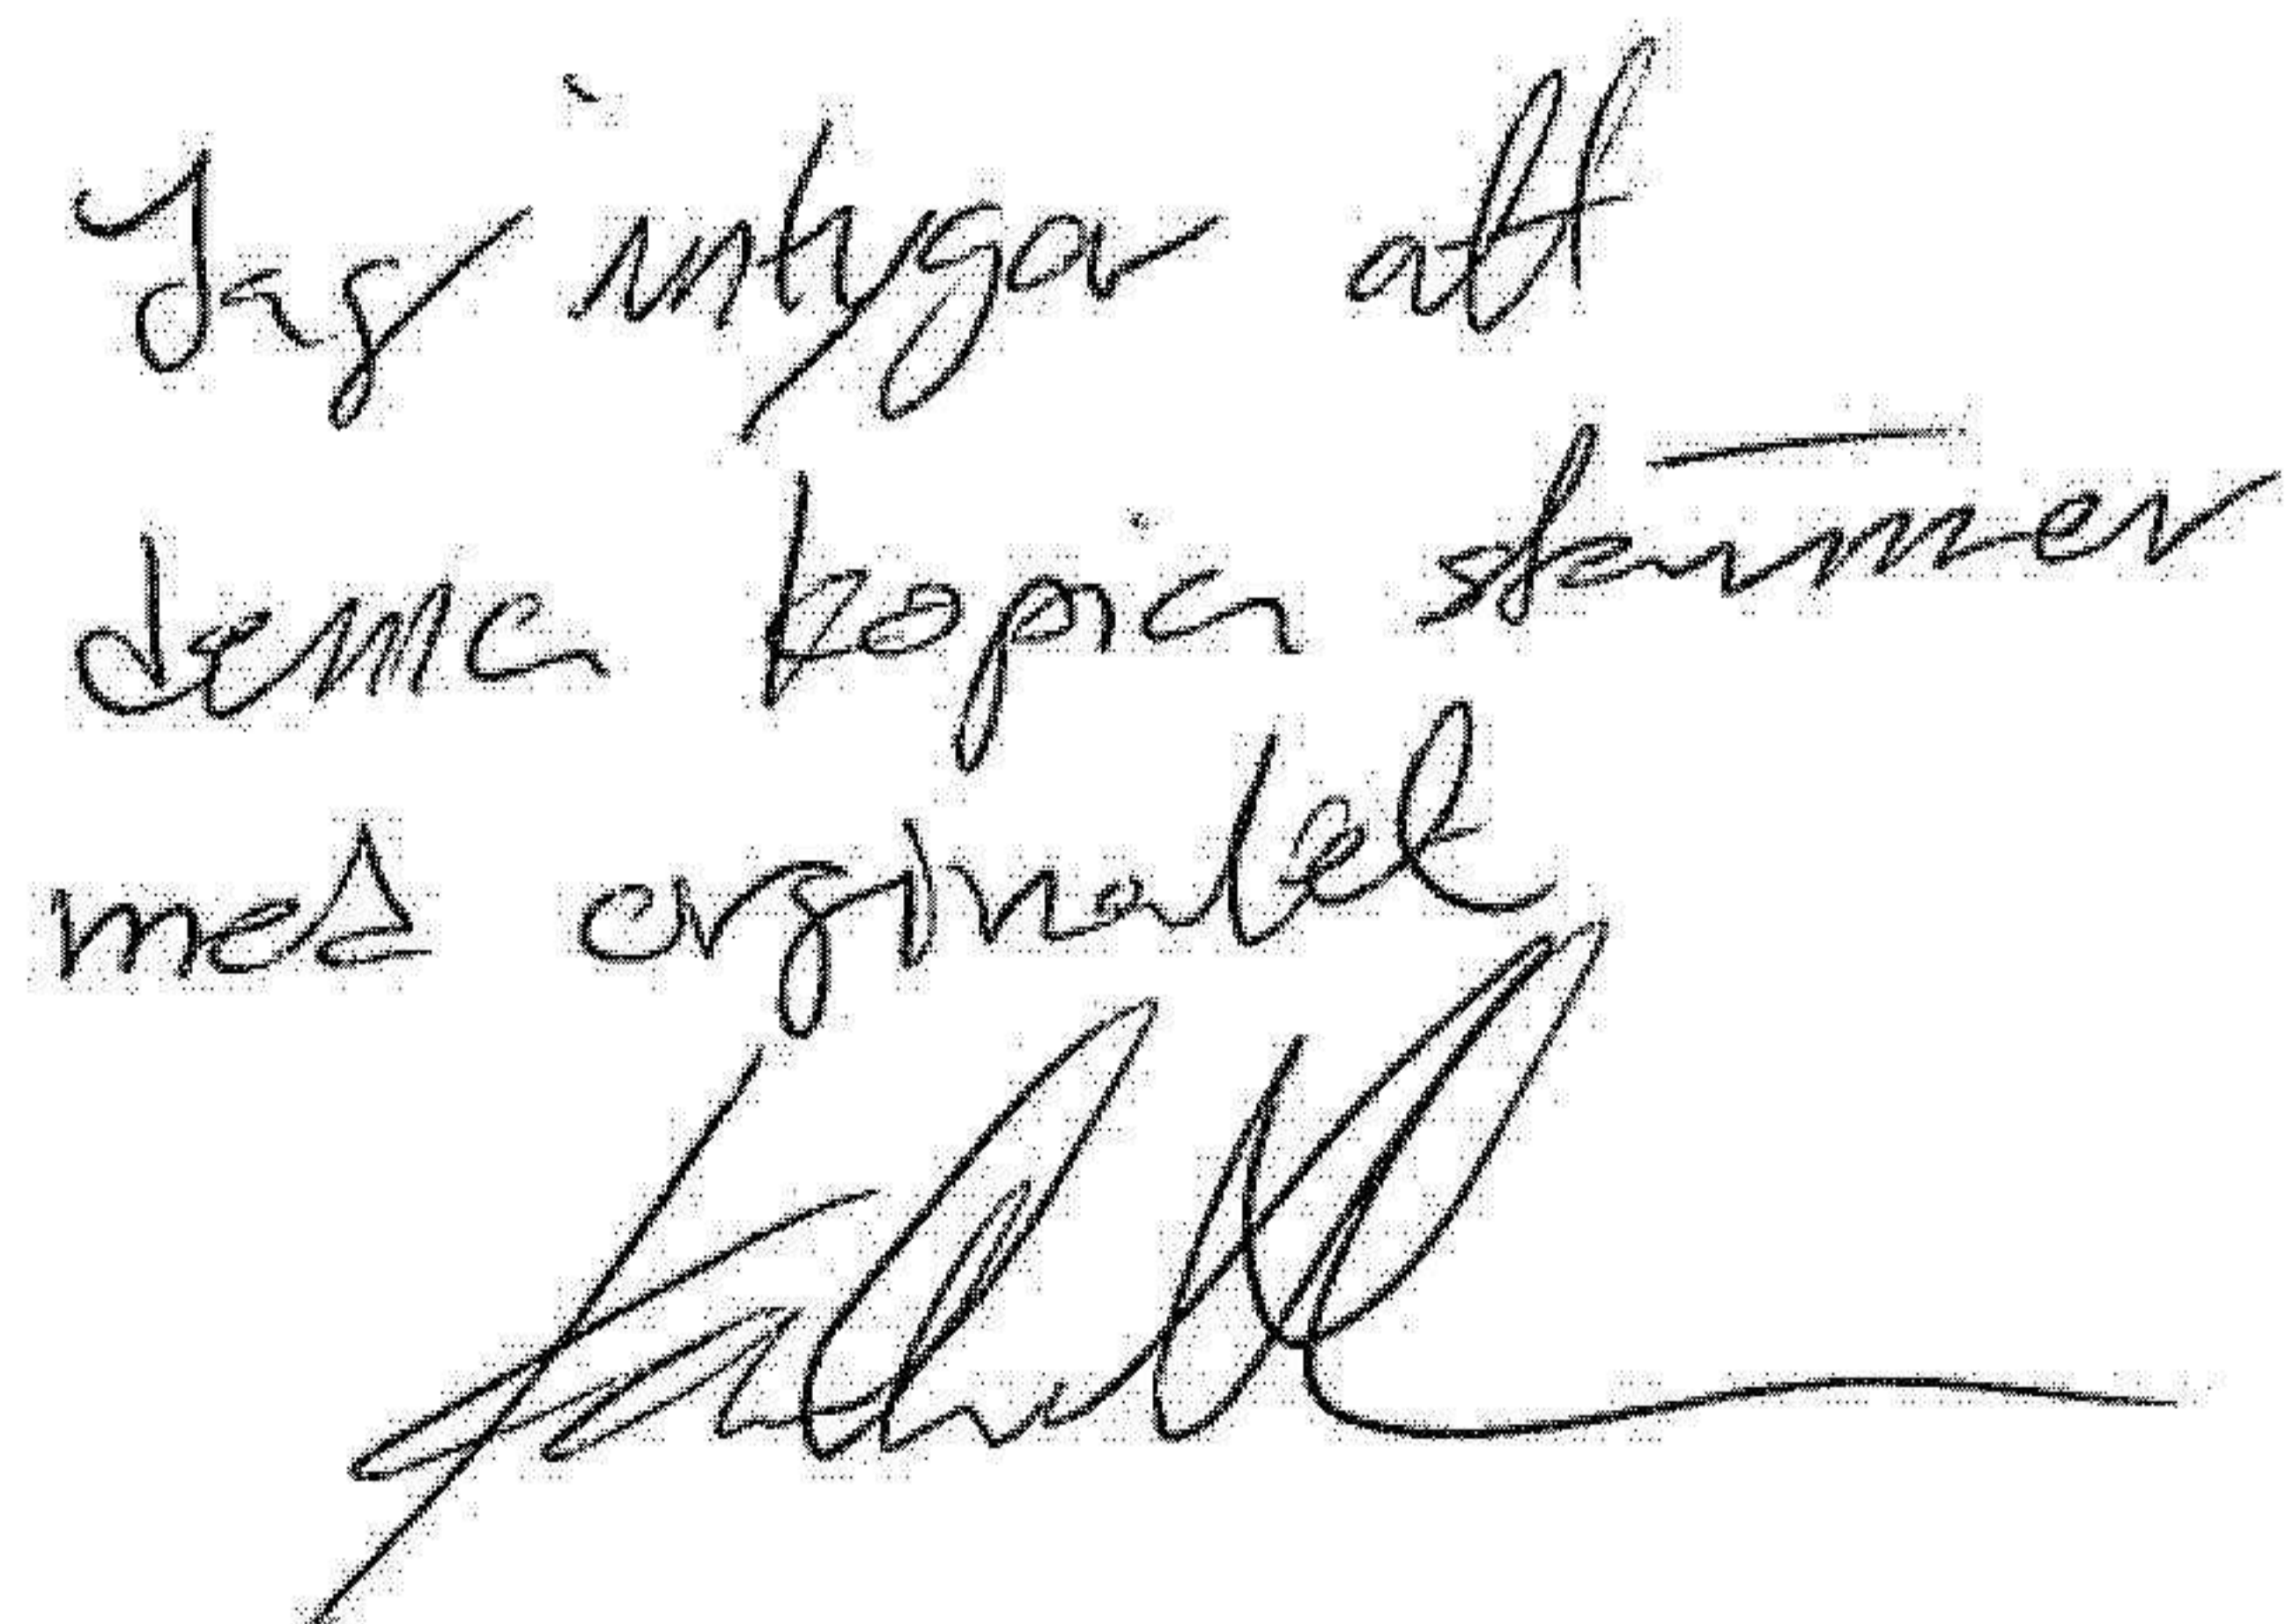 Jag intygar att
denna kopia stämmer
med orginalet